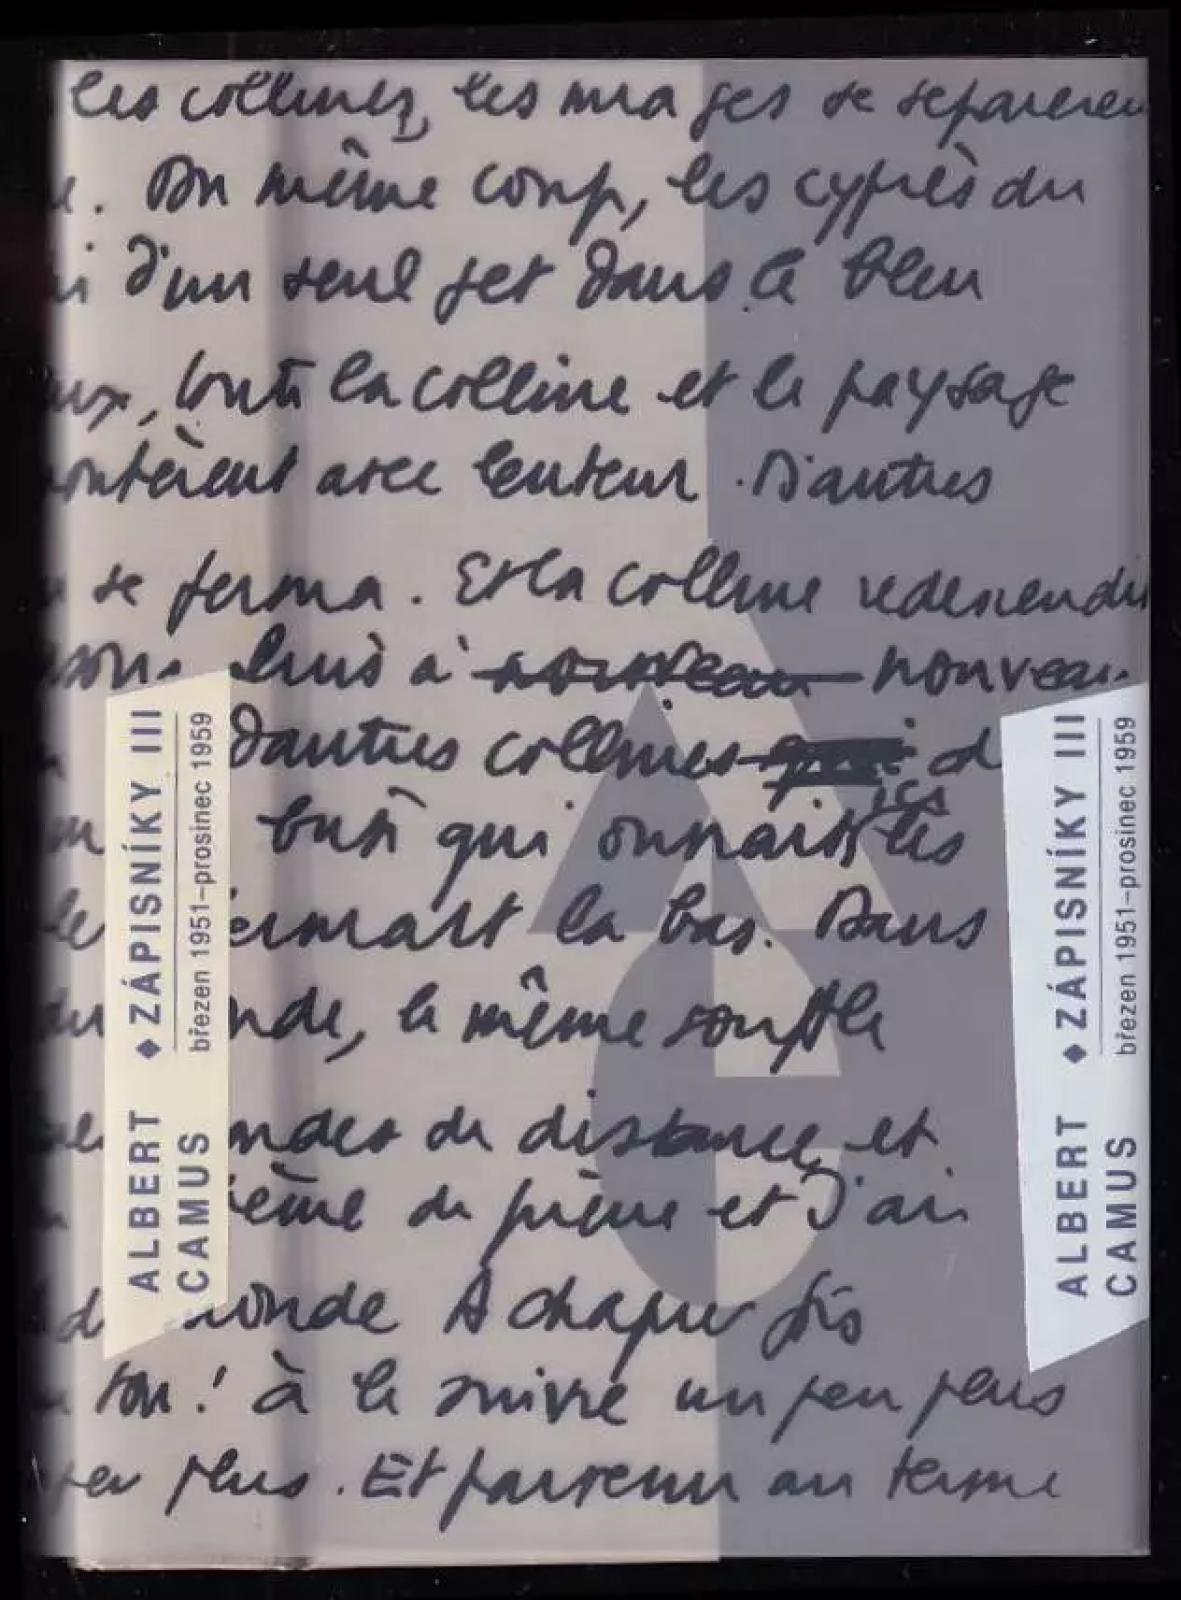 les collines, les nuages se séparèren
. Du même coup, les cyprès du
d'un seul jet dans le bleu
toute la colline et le paysage
ontèrent avec lenteur. D'autres
se ferma. Et la colline redescendit
Puis à nouveau nouveau
d'autres collines qui d
ici
qui les
là bas. Dans
nde, le même souffle
ndes de distance et
ième de pierre et d'air
d onde A chaque fois
! à le suivre un peu plus
plus. Et parvenu au terme
ALBERT CAMUS ◆ ZÁPISNÍKY III
březen 1951–prosinec 1959
ALBERT CAMUS ◆ ZÁPISNÍKY III
březen 1951–prosinec 1959